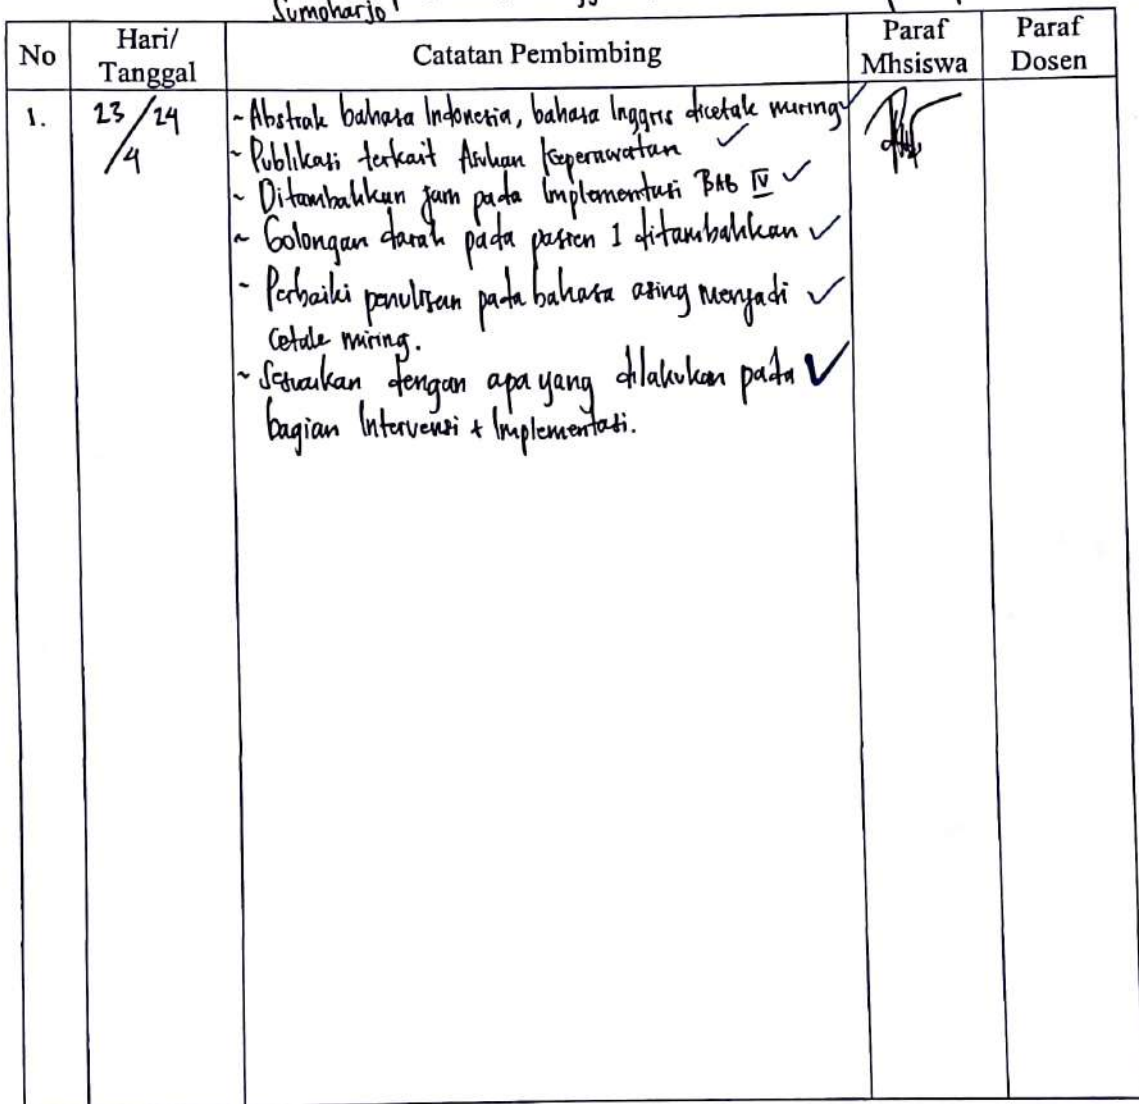 Sumoharjo
No
Hari/
Tanggal
Catatan Pembimbing
Paraf
Mhsiswa
Paraf
Dosen
1.
23/24
/4
- Abstrak bahasa Indonesia, bahasa Inggris dicetak miring ✓
- Publikasi terkait Asuhan Keperawatan ✓
- Ditambahkan jam pada Implementasi BAB IV ✓
- Golongan darah pada pasien 1 ditambahkan ✓
- Perbaiki penulisan pada bahasa asing menjadi ✓
cetak miring.
- Sesuaikan dengan apa yang dilakukan pada ✓
bagian Intervensi + Implementasi.